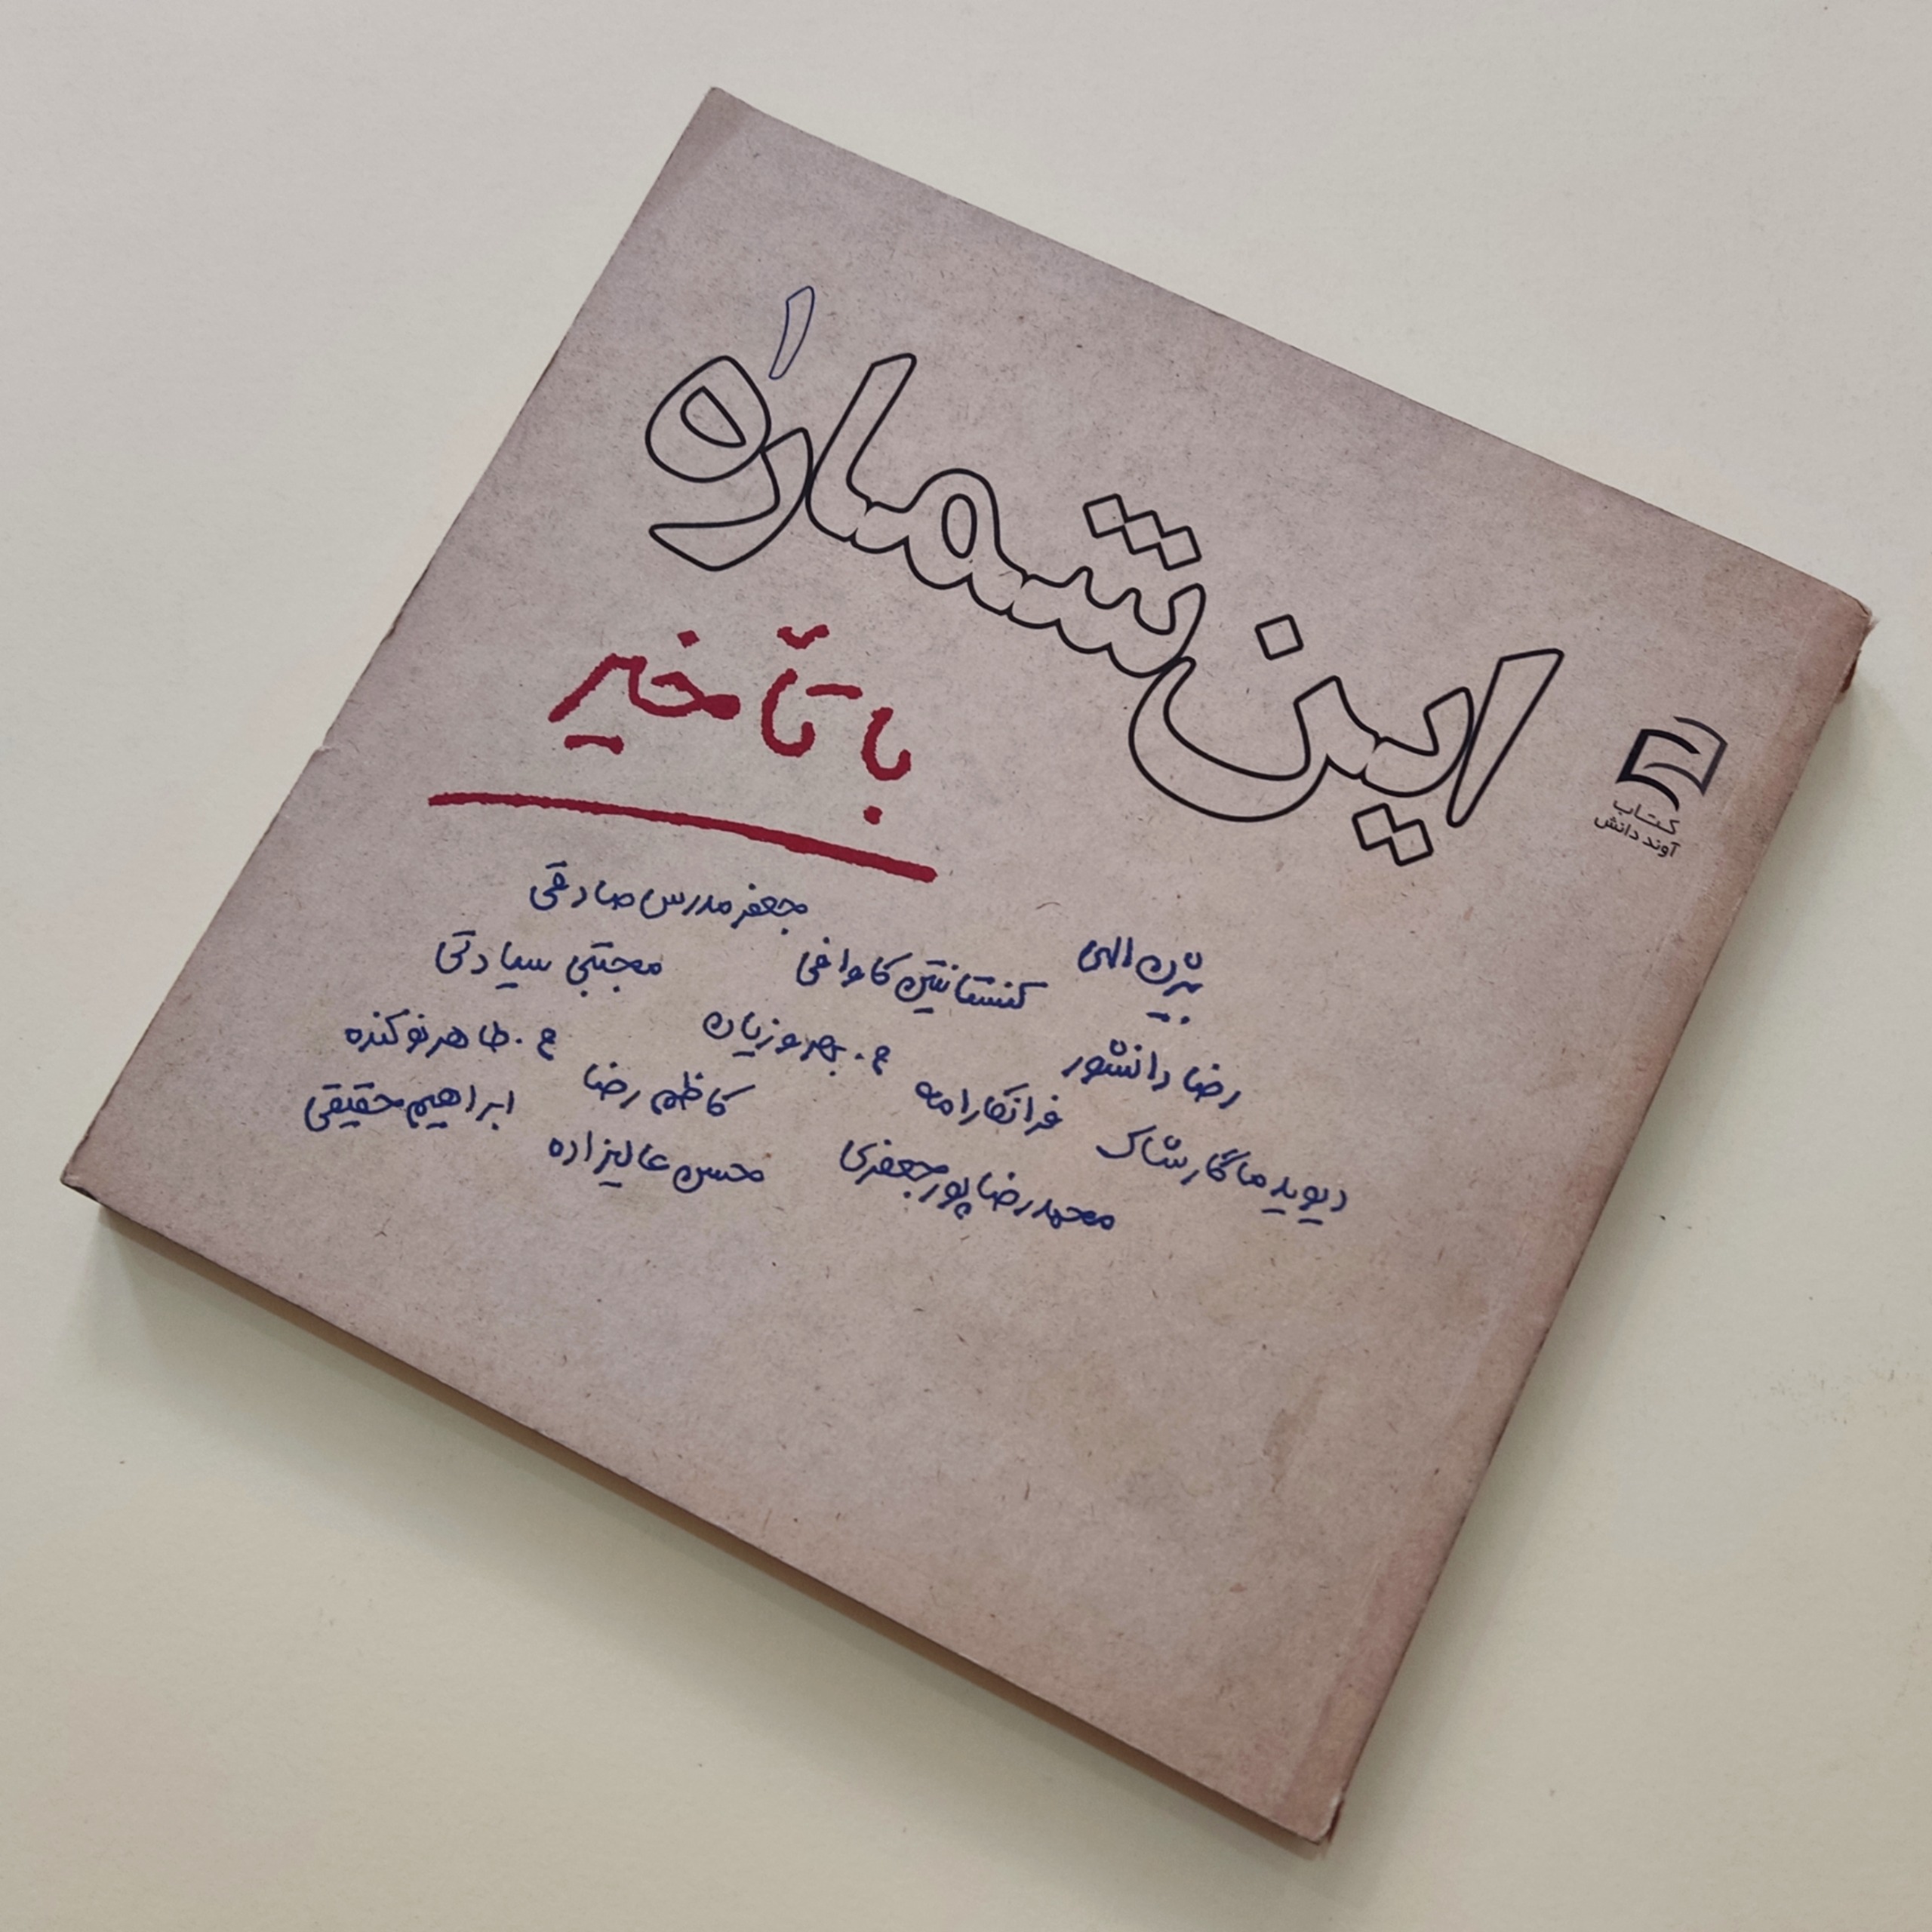 این شماره ۱
با تأخیر
کتاب
آوند دانش
جعفر مدرس صادقی
بیژن الهی کنستانتین کاوافی مجتبی سیادتی
رضا دانشور م. بهروزیان ع. طاهر نوکنده
دیوید ماگارشاک فرانکا رامه کاظم رضا ابراهیم حقیقی
محمدرضا پورجعفری محسن عالیزاده